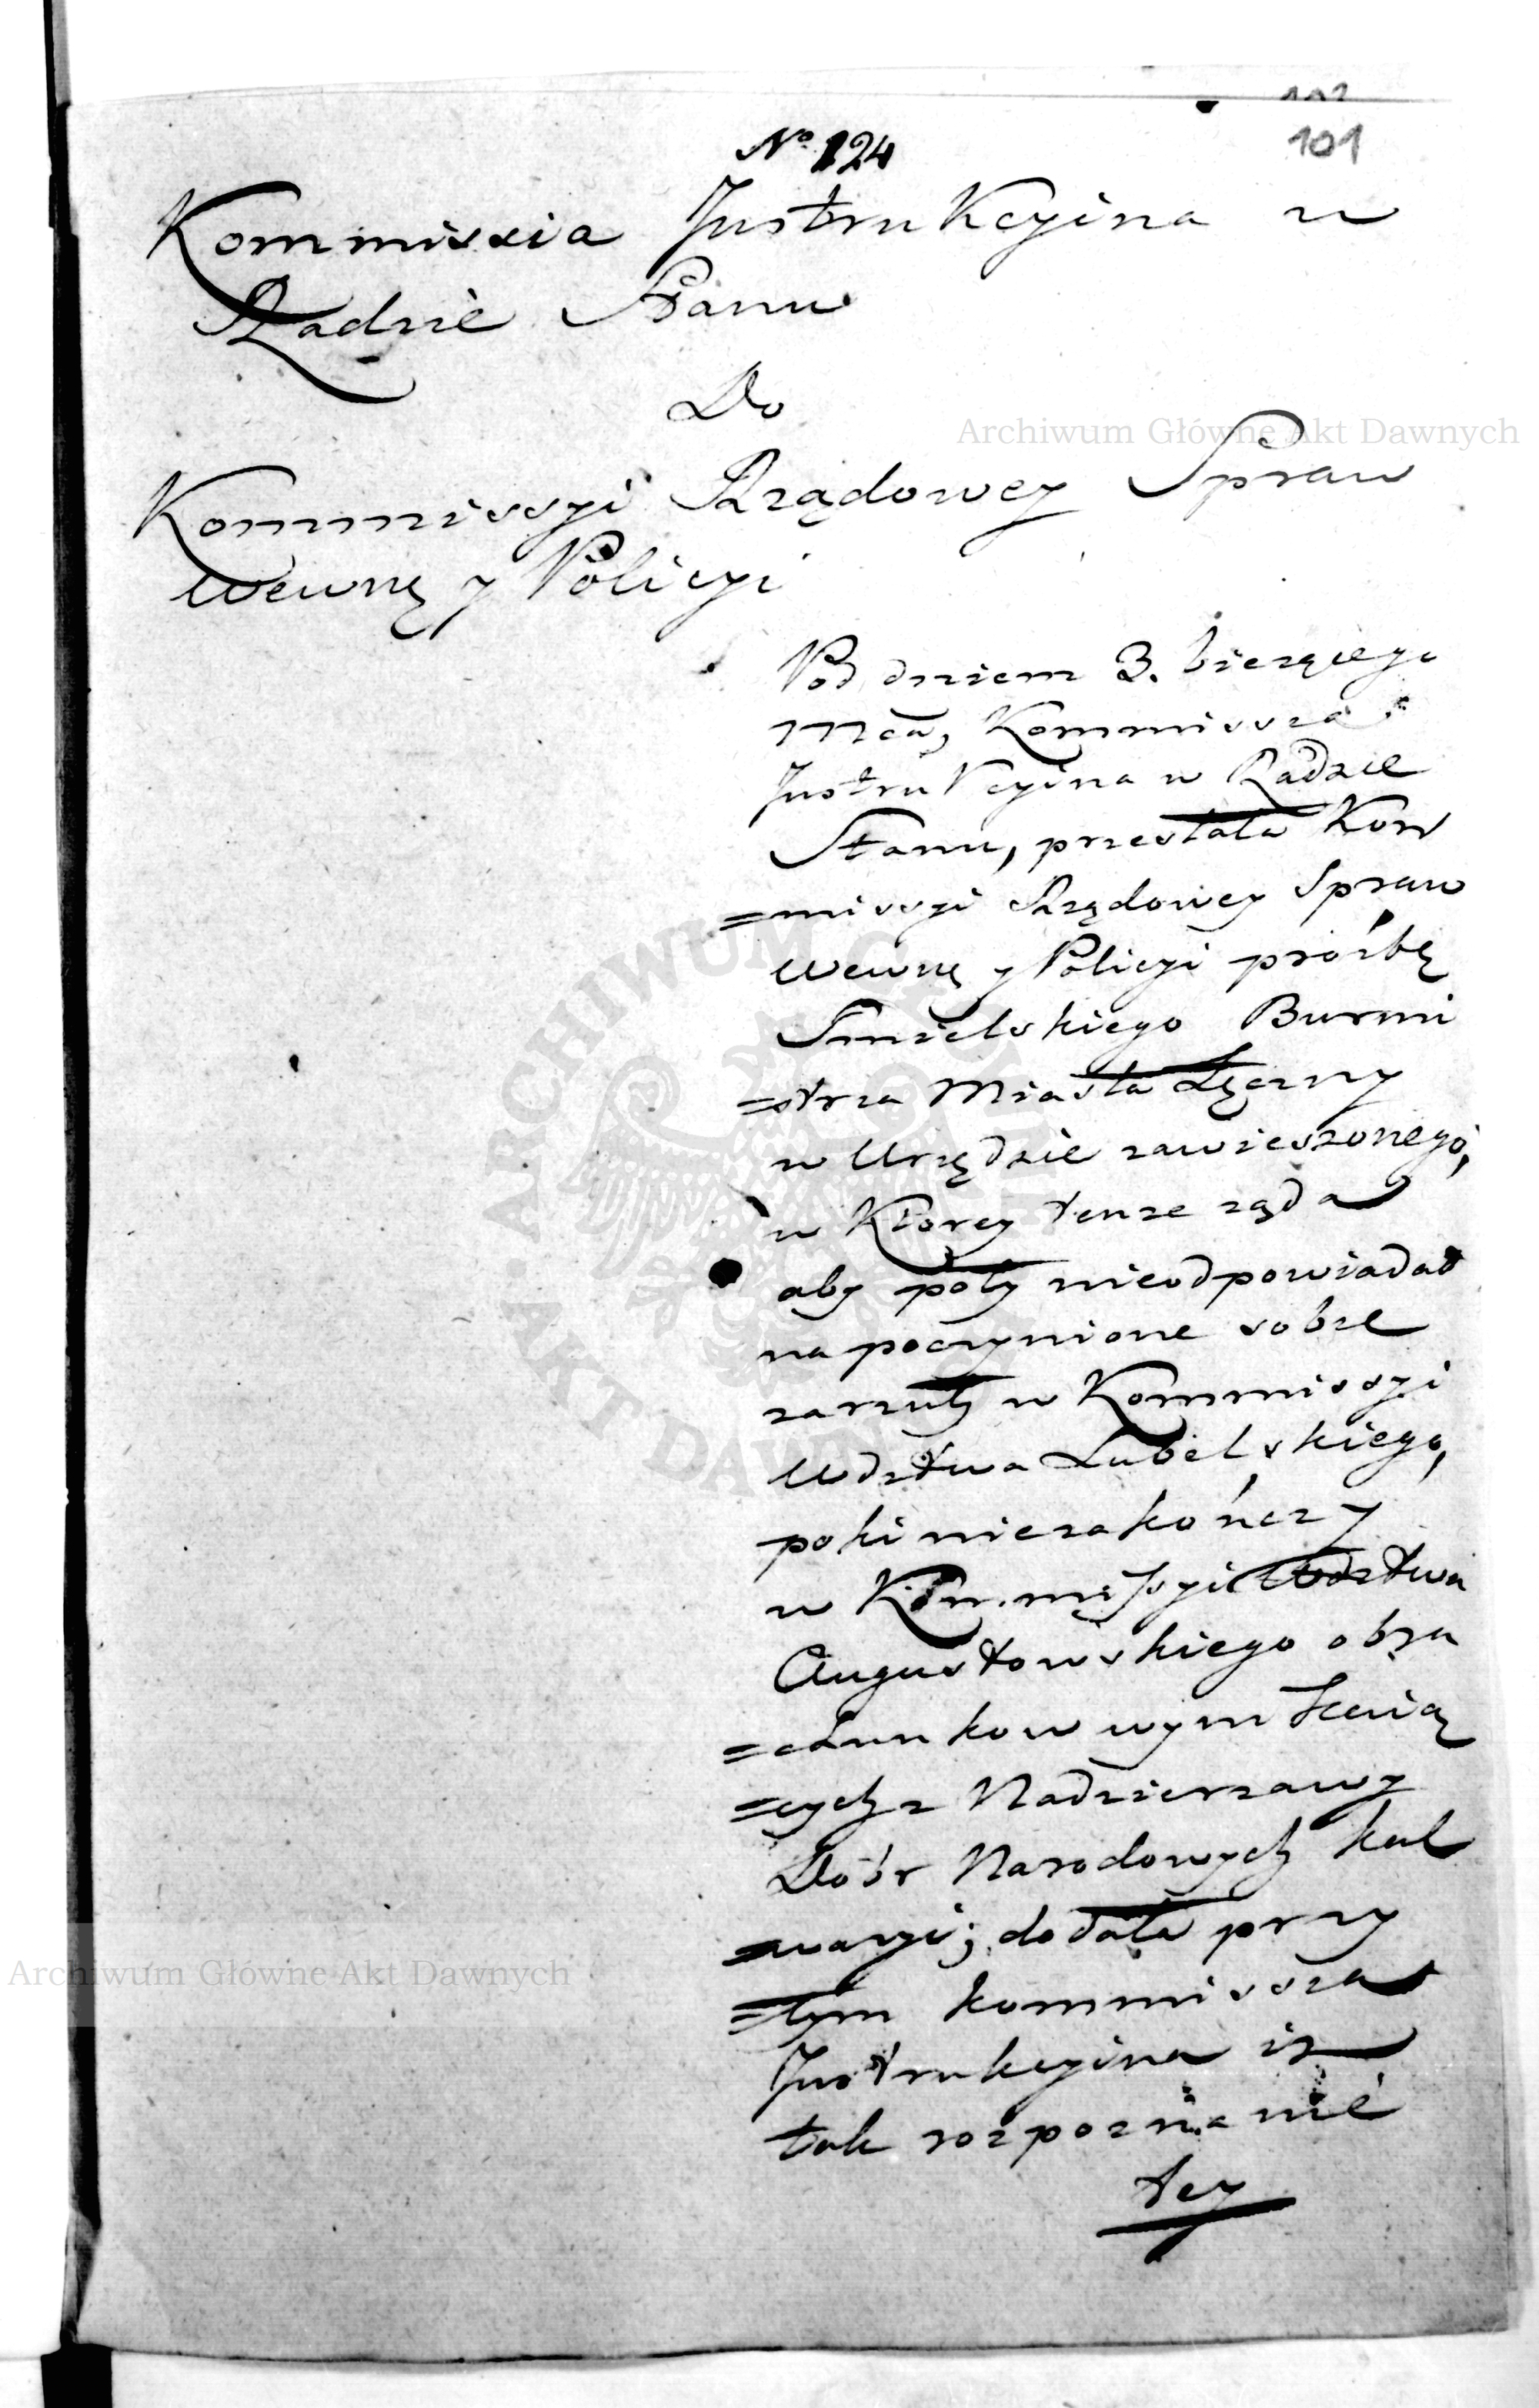 102
101
No 124
Kommissia Instrukcyina w
Radzie Stanu
Do
Archiwum Główne Akt Dawnych
Kommissyi Rządowey Spraw
Wewnę y Policyi
Pod dniem 3. bieżącego
mca, Kommissza
Instrukcyina w Radzie
Stanu, przesłała Kom
=missyi Rządowey Spraw
Wewnę y Policyi prośbę
Smielskiego Burmi
=strza Miasta Łęczny
w Urzędzie zawieszonego,
w Ktorey tenże żąda
aby poty nieodpowiadał
na poczynione sobie
zarzuty w Kommissyi
Wdztwa Lubelskiego,
poki niezakończy
w Kommissyi Wdztwa
Augustowskiego obra
=chunkow wynikaią
=cych z Nadzierzawy
Dóbr Narodowych Kal
=waryi; dodała przy
=tym kommissza
Instrukcyina iż
tak rozpoznanie
tey
Archiwum Główne Akt Dawnych
ARCHIWUM GŁÓWNE AKT DAWNYCH